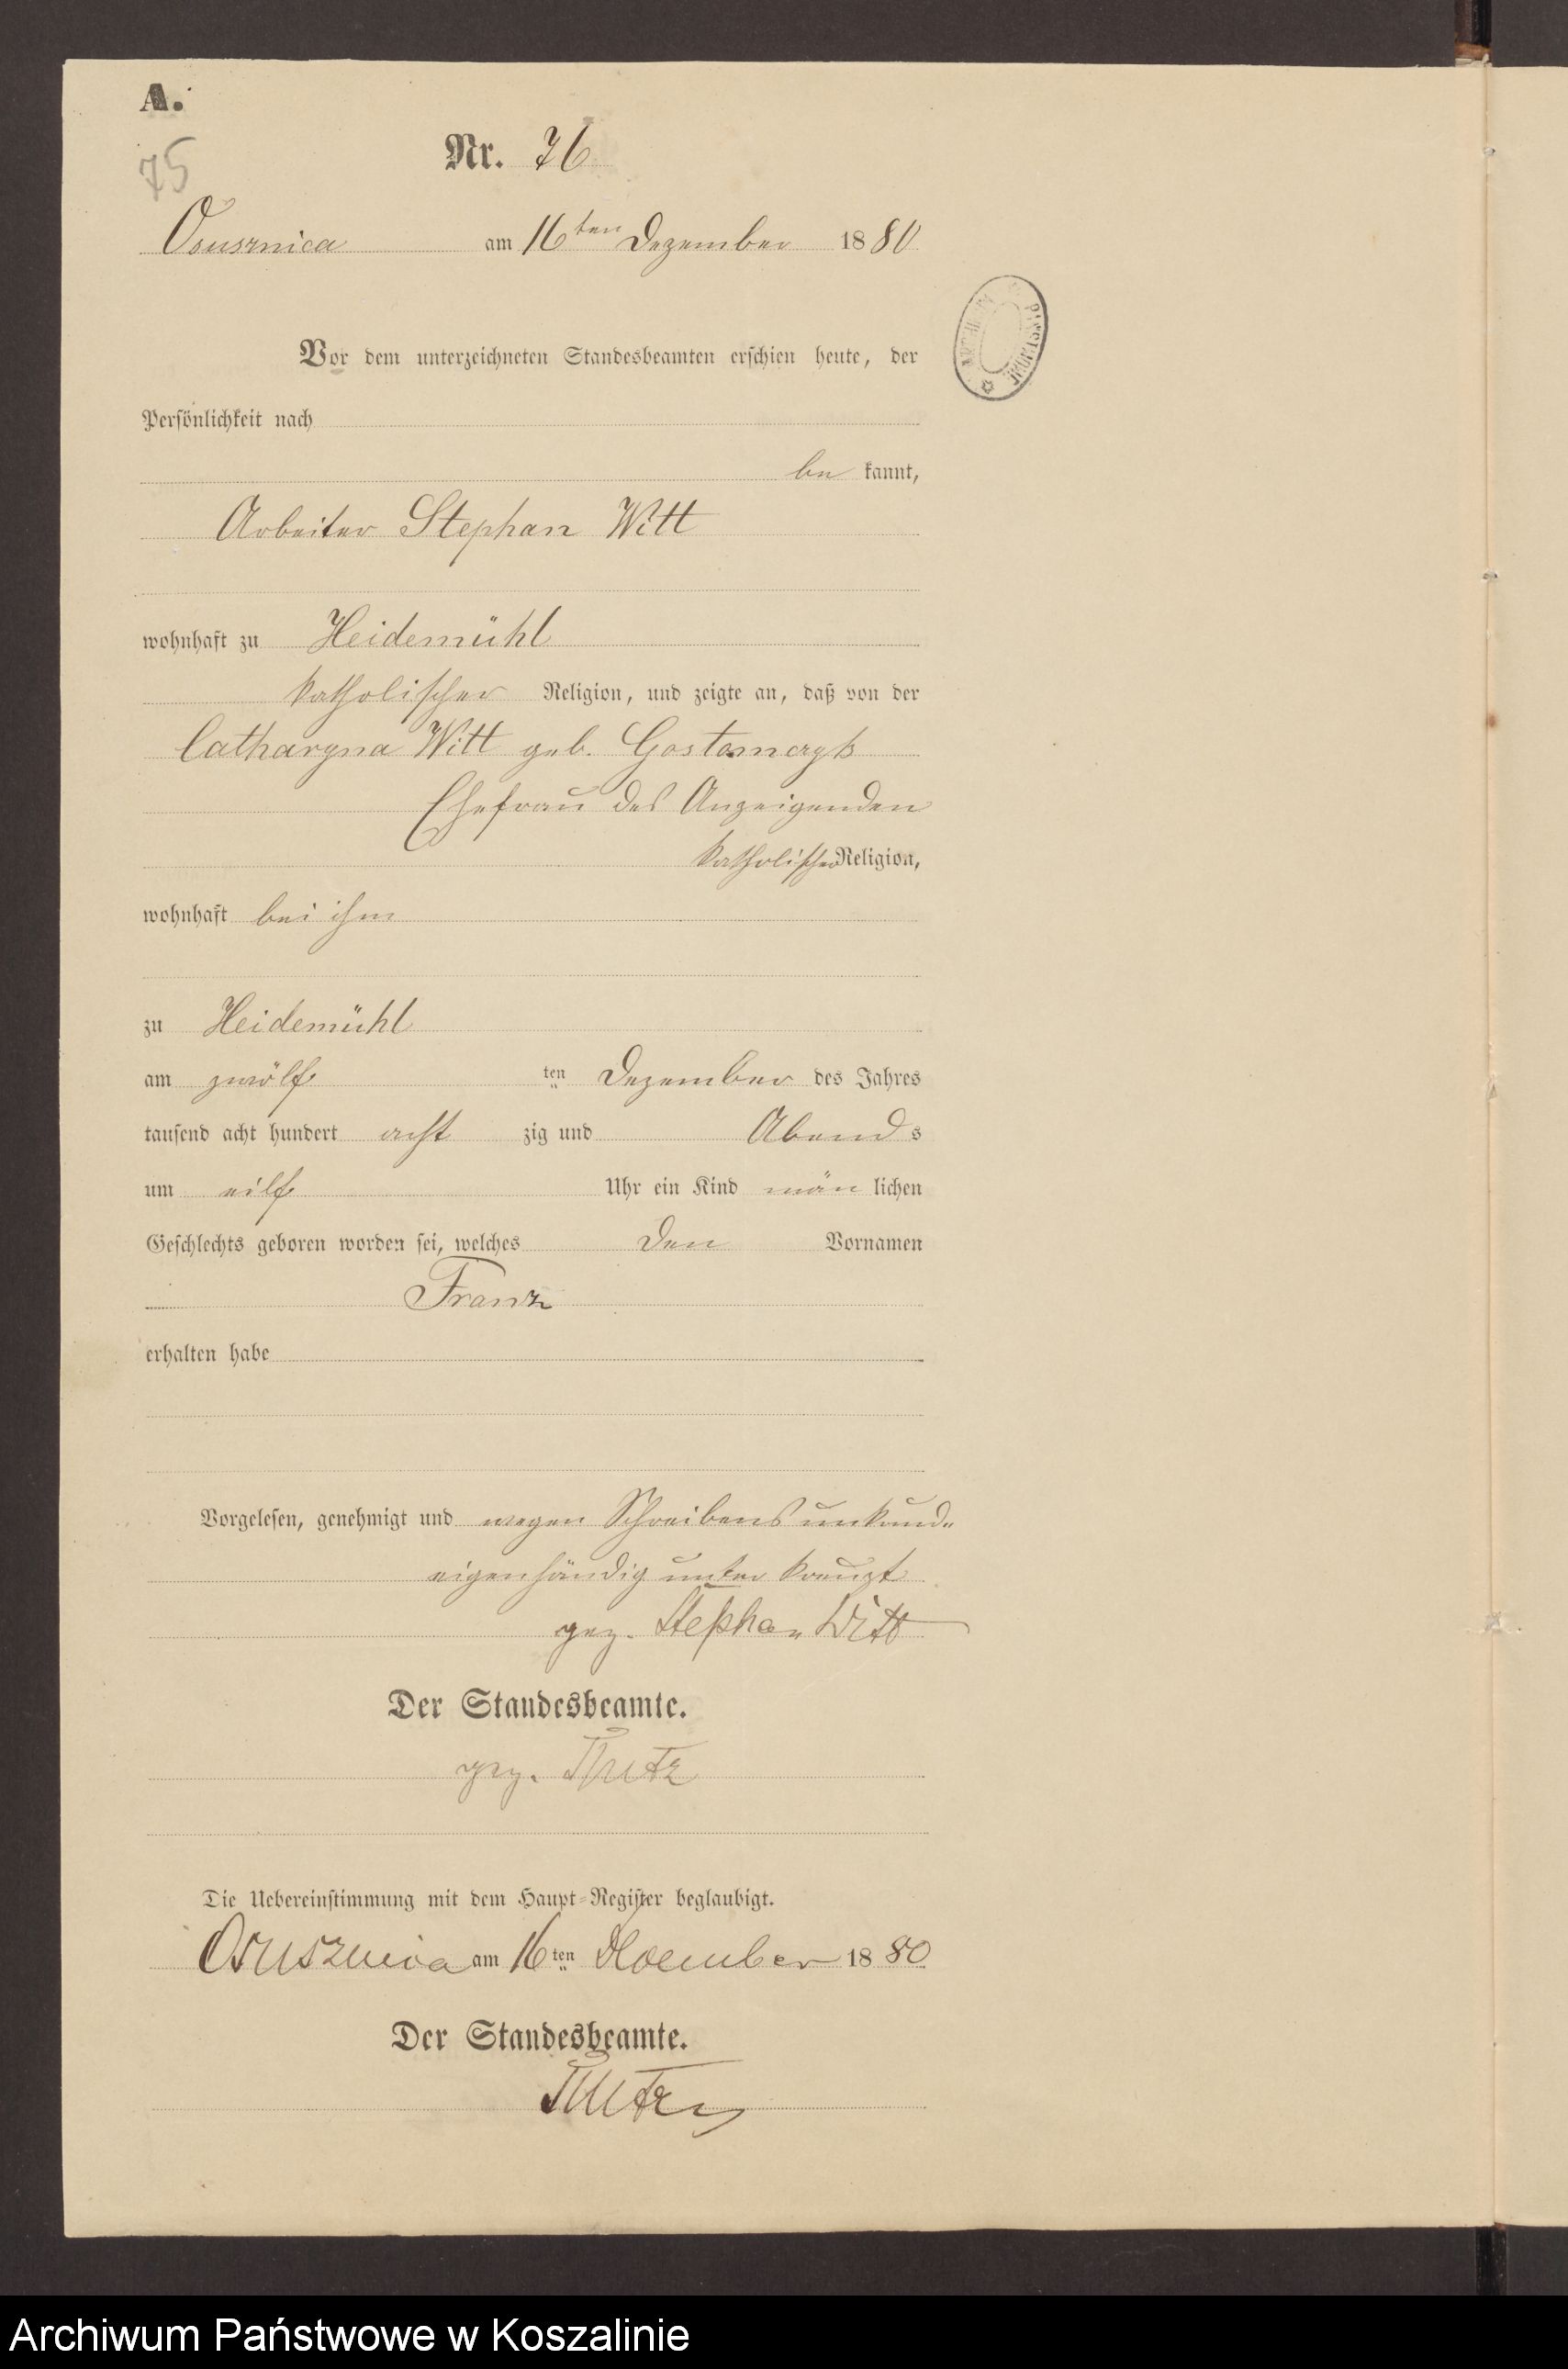 A.
75
Nr. 76
Osusznica am 16ten Dezember 1880
Vor dem unterzeichneten Standesbeamten erschien heute, der
Persönlichkeit nach
be kannt,
Arbeiter Stephan Witt
wohnhaft zu Heidemühl
katholischer Religion, und zeigte an, daß von der
Catharyna Witt geb. Gostomczyk
Ehefrau des Anzeigenden
katholischer Religion,
wohnhaft bei ihm
zu Heidemühl
am zwölf ten Dezember des Jahres
tausend acht hundert acht zig und Abends
um eilf Uhr ein Kind män lichen
Geschlechts geboren worden sei, welches den Vornamen
Franz
erhalten habe
Vorgelesen, genehmigt und wegen Schreibensunkunde
eigenhändig unterkreuzt
gez. Stephan Witt
Der Standesbeamte.
gez.
Die Uebereinstimmung mit dem Haupt-Register beglaubigt.
Osusznica am 16ten 1880
Der Standesbeamte.
Archiwum Państwowe w Koszalinie